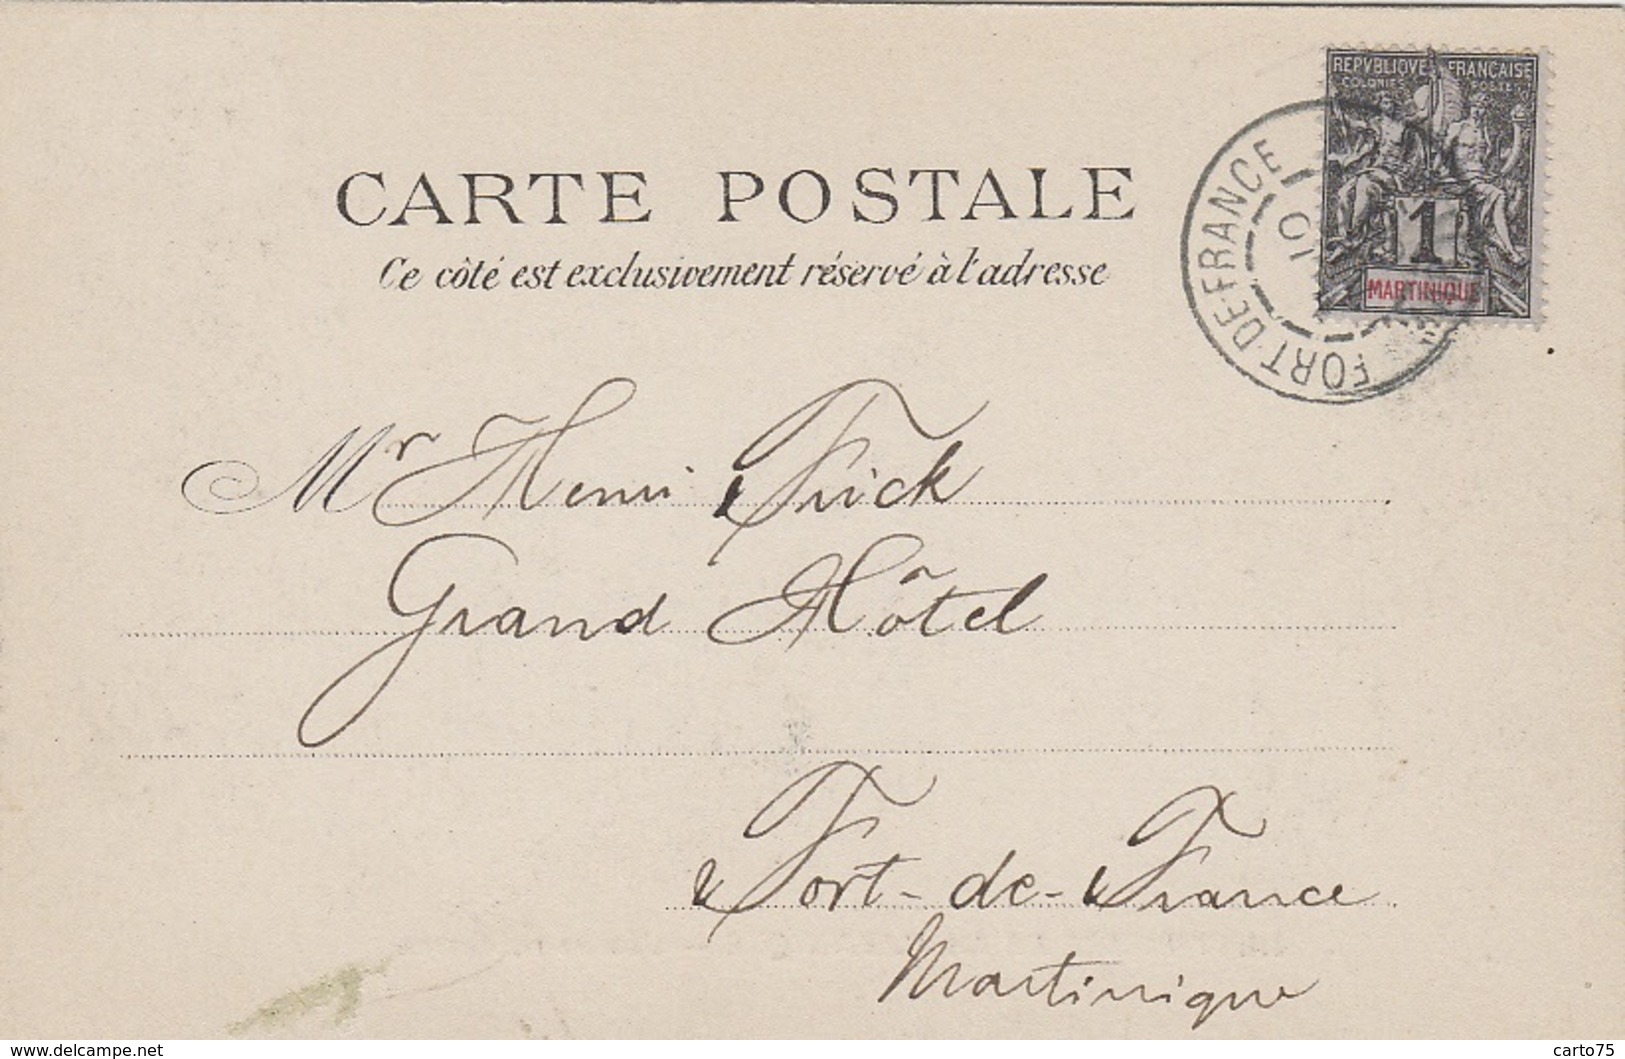 REPVBLIQVE FRANÇAISE
COLONIES POSTES
1
MARTINIQUE
FORT-DE-FRANCE
10
CARTE POSTALE
Ce côté est exclusivement réservé à l'adresse
Mr Henri Frick
Grand Hôtel
Fort-de-France
Martinique
www.delcampe.net
carto75